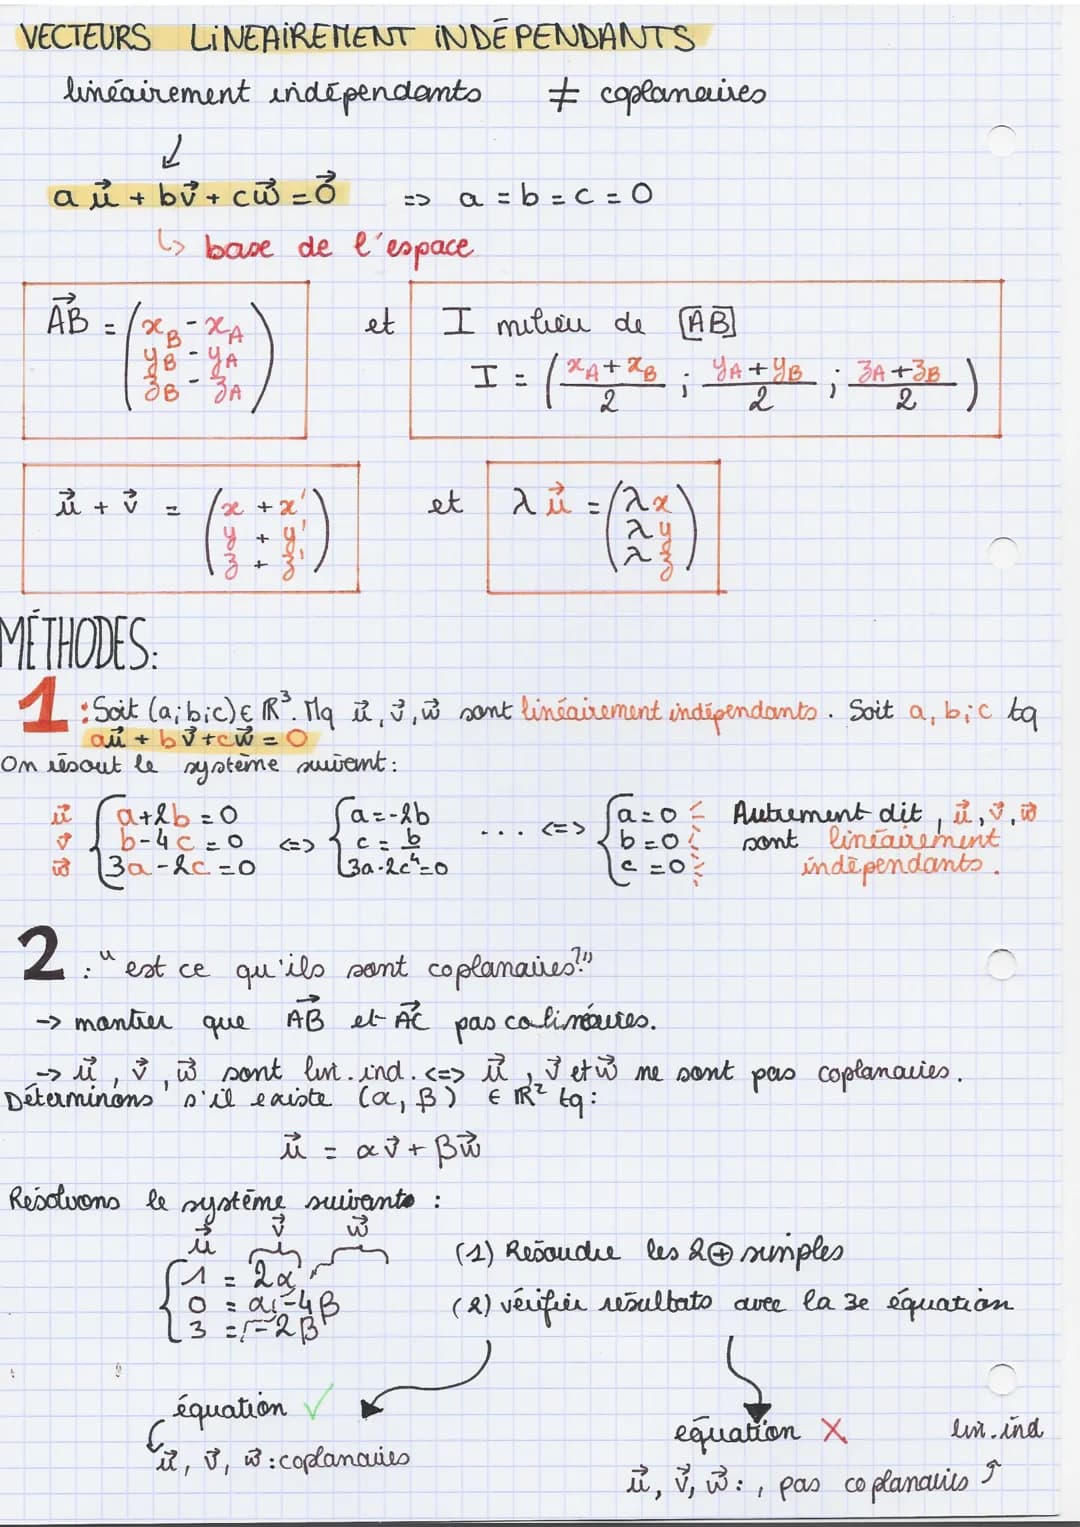 VECTEURS LINEAIREMENT INDÉPENDANTS
linéairement indépendants ≠ coplanaires
↙
a u⃗ + bv⃗ + cw⃗ = 0⃗ => a = b = c = 0
↳ base de l'espace
AB⃗ = (x_B - x_A
y_B - y_A
z_B - z_A)
et I milieu de [AB]
I = ((x_A + x_B)/2 ; (y_A + y_B)/2 ; (z_A + z_B)/2)
u⃗ + v⃗ = (x + x'
y + y'
z + z')
et λu⃗ = (λx
λy
λz)
MÉTHODES:
1 : Soit (a;b;c) ∈ ℝ³. Mq u⃗, v⃗, w⃗ sont linéairement indépendants. Soit a, b, c tq
au⃗ + bv⃗ + cw⃗ = 0
On résout le système suivant :
u⃗ { a+2b = 0 { a = -2b { a = 0 Autrement dit, u⃗, v⃗, w⃗
v⃗ { b-4c = 0 <=> { c = b/4 ... <=> { b = 0 sont linéairement
w⃗ { 3a-2c = 0 { 3a-2c = 0 { c = 0 indépendants.
2 : "est ce qu'ils sont coplanaires?"
-> montrer que AB⃗ et AC⃗ pas colinéaires.
-> u⃗, v⃗, w⃗ sont lin. ind. <=> u⃗, v⃗ et w⃗ ne sont pas coplanaires.
Déterminons s'il existe (α, β) ∈ ℝ² tq :
u⃗ = αv⃗ + βw⃗
Résolvons le système suivants :
u⃗ v⃗ w⃗
{ 1 = 2α (1) Résoudre les 2 ⊕ simples
{ 0 = α - 4β (2) vérifier résultats avec la 3e équation
{ 3 = -2β
équation ✓
u⃗, v⃗, w⃗ : coplanaires
équation X lin. ind
u⃗, v⃗, w⃗ : , pas coplanaires ↑